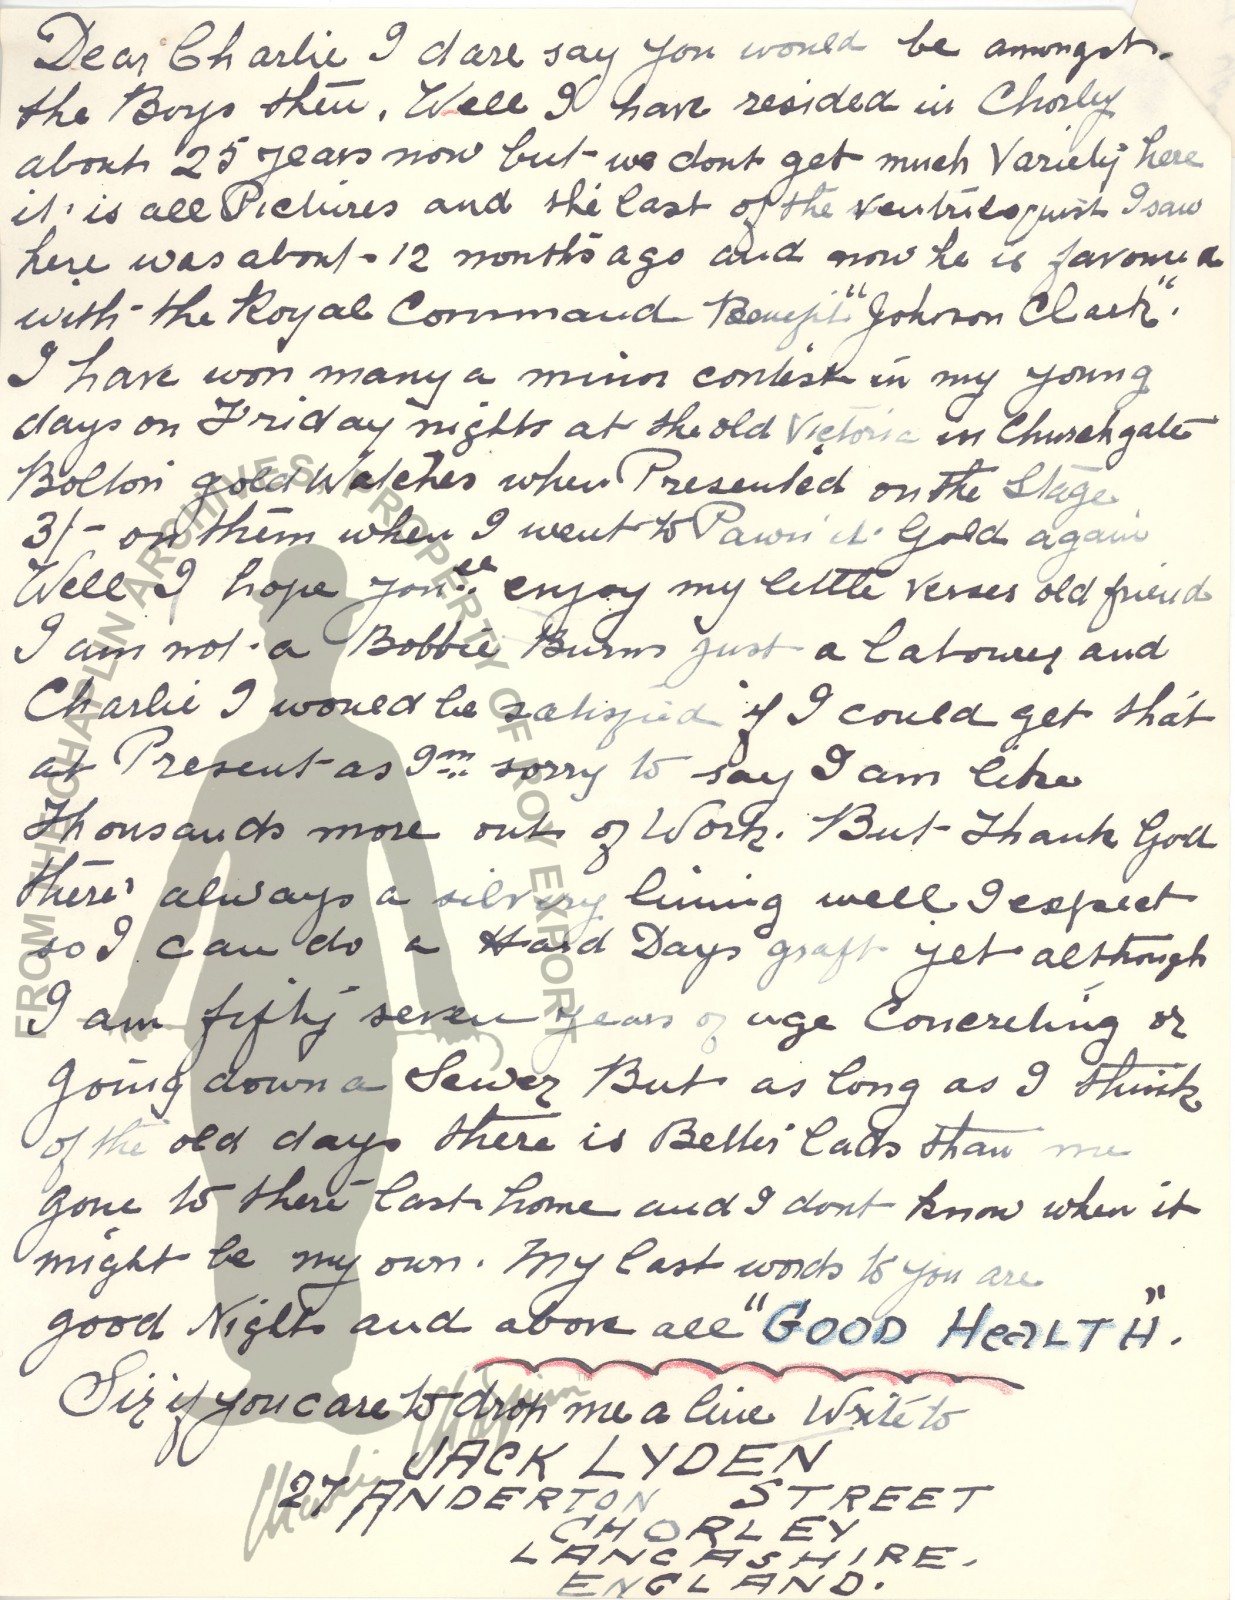 Dear Charlie I dare say you would be amongst
the Boys then. Well I have resided in Chorley
about 25 years now but we dont get much Variety here
it is all Pictures and the last of the ventriloquist I saw
here was about 12 months ago and now he is favoured
with the Royal Command Benefit "Johnson Clark".
I have won many a minor contest in my young
days on Friday nights at the old Victoria in Churchgate
Bolton gold Watches when Presented on the Stage
3/- on them when I went to Pawn it Gold again
Well I hope you'll enjoy my little verses old friend
I am not a Bobbie Burns just a labourer and
Charlie I would be satisfied if I could get that
at Present as I'm sorry to say I am like
thousands more out of Work. But thank God
there's always a silvery lining well I expect
so I can do a Hard Days graft yet although
I am fifty seven years of age Concreting or
going down a Sewer But as long as I think
of the old days there is Better lads than me
gone to there last home and I dont know when it
might be my own. My last words to you are
good Night and above all "GOOD HEALTH".
Sir if you care to drop me a line Write to
JACK LYDEN
27 ANDERTON STREET
CHORLEY
LANCASHIRE.
ENGLAND.
FROM THE CHAPLIN ARCHIVES, PROPERTY OF ROY EXPORT
Charlie Chaplin™